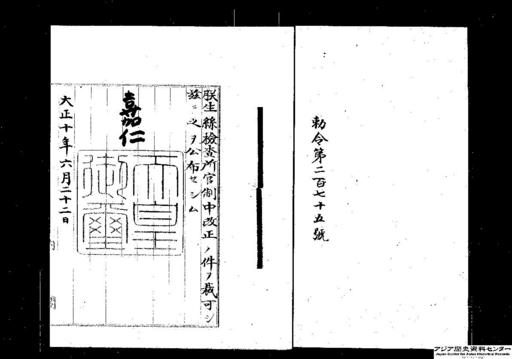 勅令第二百七十五號
朕生絲檢査所官制中改正ノ件ヲ裁可シ
茲ニ之ヲ公布セシム
嘉仁
天皇
御璽
大正十年六月二十二日
アジア歴史資料センター
Japan Center for Asian Historical Records